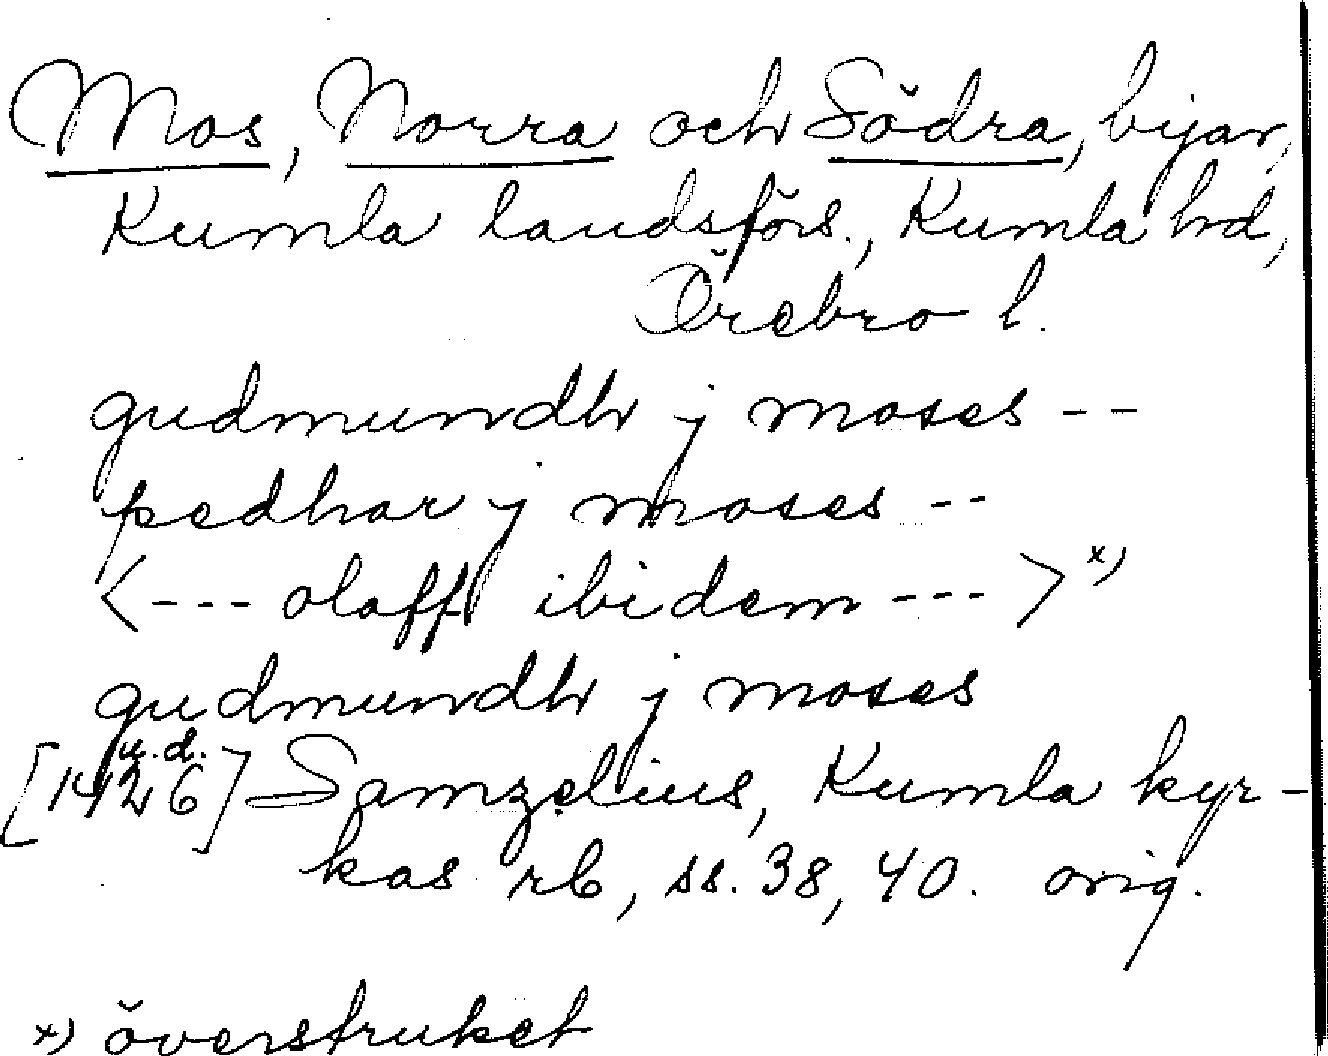 Mos, Norra och Södra, byar,
Kumla landsförs., Kumla hd,
Örebro l.
gudmundh j moses --
pedhar j moses --
<--- olaff ibidem --->*)
gudmundh j moses
u.d.
[1426] Samzelius, Kumla kyr-
kas rb, ss. 38, 40. orig.
*) överstruket